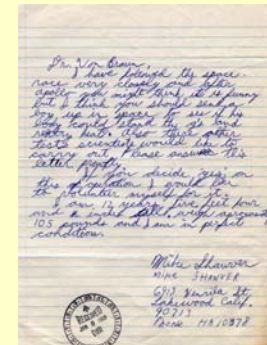 Dr. Von Braun,
I have followed the space
race very closely and after
apollo you might think it is funny
but I think you should send a
boy up in space to see if his
body could stand the g's and
reentry heat. Also there other
tests scientists would like to
carry out. Please answer this
letter promptly.
If you decide "yes" on
this I would like
to volunteer myself for it.
I am 12 years, five feet four
and a tall, weigh
105 pounds and I am in perfect
condition.
Mike Shawver
MIKE SHAWVER
6913
Lakewood Calif.
90713
Phone
RECEIVED